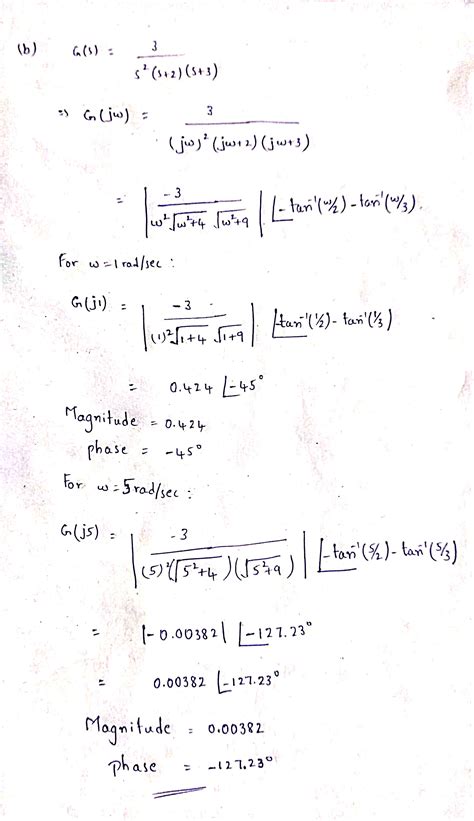 (b) G(s) = 3 / s²(s+2)(s+3)
=> G(jω) = 3 / (jω)²(jω+2)(jω+3)
= | -3 / ω²√ω²+4 √ω²+9 | ∠-tan⁻¹(ω/2)-tan⁻¹(ω/3).
For ω=1rad/sec :
G(j1) = | -3 / (1)²√1+4 √1+9 | ∠tan⁻¹(1/2)-tan⁻¹(1/3)
= 0.424 ∠-45°
Magnitude = 0.424
phase = -45°
For ω=5rad/sec :
G(j5) = | -3 / (5)²(√5²+4)(√5²+9) | ∠-tan⁻¹(5/2)-tan⁻¹(5/3)
= |-0.00382| ∠-127.23°
= 0.00382 ∠-127.23°
Magnitude = 0.00382
phase = -127.23°